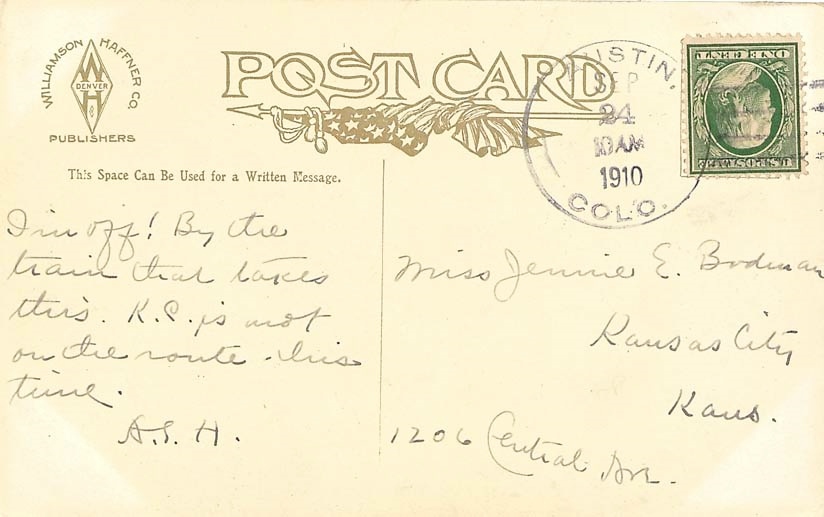 WILLIAMSON HAFFNER CO.
DENVER
W H
PUBLISHERS
POST CARD
This Space Can Be Used for a Written Message.
AUSTIN,
SEP
24
10 AM
1910
COLO.
U.S. POSTAGE
ONE CENT
I'm off! By the
train that takes
this. K.C. is not
on the route this
time.
A.S.H.
Miss Jennie E. Bodman
Kansas City
Kans.
1206 Central Ave.